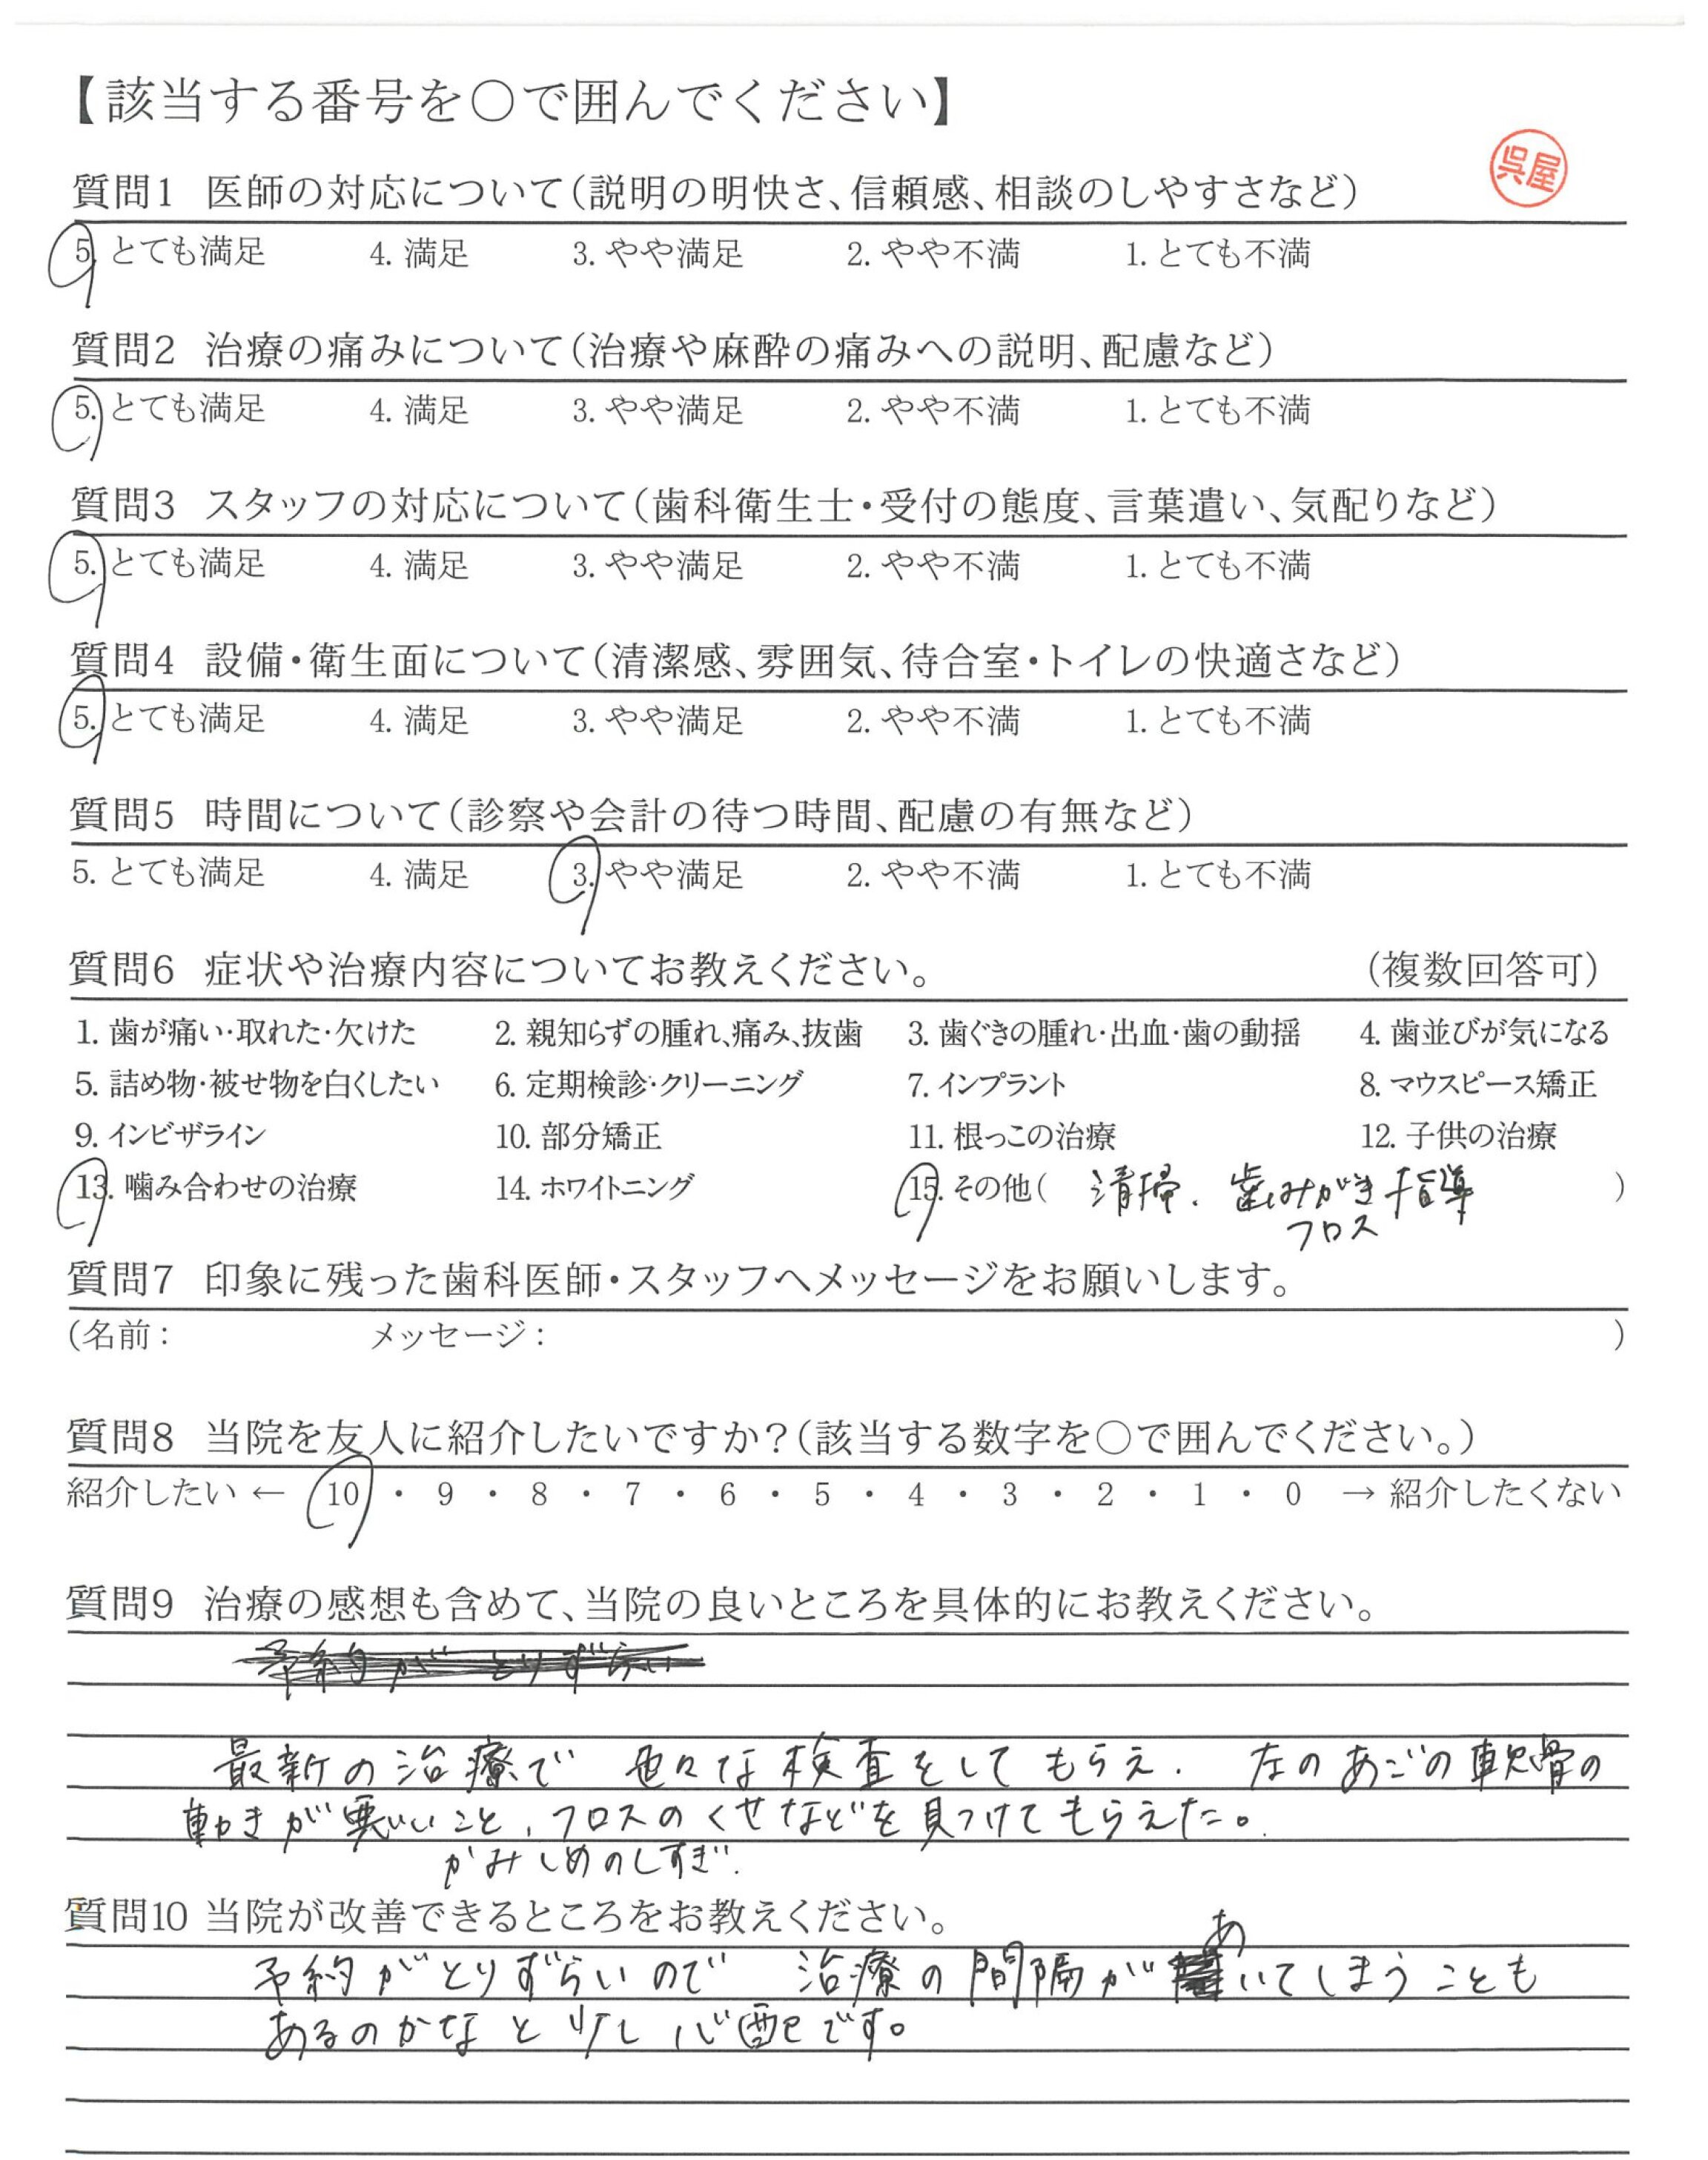 【該当する番号を○で囲んでください】
呉屋
質問1 医師の対応について(説明の明快さ、信頼感、相談のしやすさなど)
5. とても満足 4. 満足 3. やや満足 2. やや不満 1. とても不満
質問2 治療の痛みについて(治療や麻酔の痛みへの説明、配慮など)
5. とても満足 4. 満足 3. やや満足 2. やや不満 1. とても不満
質問3 スタッフの対応について(歯科衛生士・受付の態度、言葉遣い、気配りなど)
5. とても満足 4. 満足 3. やや満足 2. やや不満 1. とても不満
質問4 設備・衛生面について(清潔感、雰囲気、待合室・トイレの快適さなど)
5. とても満足 4. 満足 3. やや満足 2. やや不満 1. とても不満
質問5 時間について(診察や会計の待つ時間、配慮の有無など)
5. とても満足 4. 満足 3. やや満足 2. やや不満 1. とても不満
質問6 症状や治療内容についてお教えください。 (複数回答可)
1. 歯が痛い・取れた・欠けた 2. 親知らずの腫れ、痛み、抜歯 3. 歯ぐきの腫れ・出血・歯の動揺 4. 歯並びが気になる
5. 詰め物・被せ物を白くしたい 6. 定期検診・クリーニング 7. インプラント 8. マウスピース矯正
9. インビザライン 10. 部分矯正 11. 根っこの治療 12. 子供の治療
13. 噛み合わせの治療 14. ホワイトニング 15. その他( 清掃、歯みがき指導 )
フロス
質問7 印象に残った歯科医師・スタッフへメッセージをお願いします。
(名前: メッセージ: )
質問8 当院を友人に紹介したいですか?(該当する数字を○で囲んでください。)
紹介したい ← 10 ・ 9 ・ 8 ・ 7 ・ 6 ・ 5 ・ 4 ・ 3 ・ 2 ・ 1 ・ 0 → 紹介したくない
質問9 治療の感想も含めて、当院の良いところを具体的にお教えください。
予約が とりずらい
最新の治療で 色々な検査をしてもらえ、左のあごの軟骨の
動きが悪いこと、フロスのくせなどを見つけてもらえた。
かみしめのしすぎ、
質問10 当院が改善できるところをお教えください。
あ
予約がとりずらいので 治療の間隔がいてしまうことも
あるのかなと少し心配です。